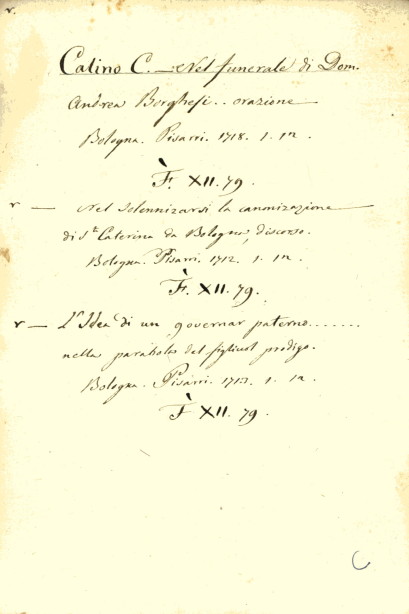 r.
Calino C. — Nel funerale di Dom.
Andrea Borghesi.. orazione —
Bologna. Pisarri. 1718. 1. in.
F. XII. 79.
r — Nel solennizarsi la canonizazione
di S.ta Caterina da Bologna, discorso.
Bologna. Pisarri. 1712. 1. in.
F. XII. 79.
r — L'Idea di un governar paterno.......
nella parabola del figliuol prodigo.
Bologna. Pisarri. 1713. 1. in.
F XII. 79.
C